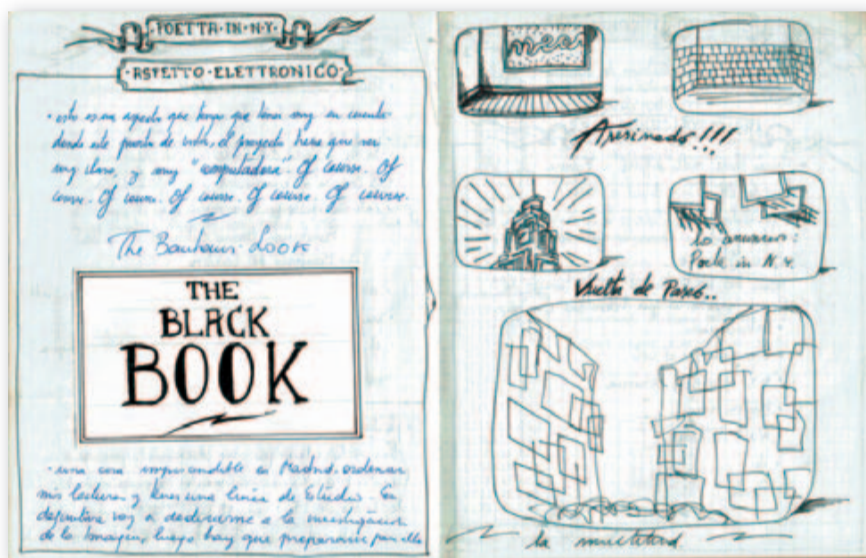 ·POETTA·IN·N·Y·
·ASPETTO·ELETTRONICO·
· esto es un aspecto que tengo que tener muy en cuenta
desde este punto de vista, el proyecto tiene que ser
muy claro, y muy "computadora". Of course. Of
course. Of course. Of course. Of course. Of course.
The Bauhaus Look
THE
BLACK
BOOK
· una cosa imprescindible en Madrid. ordenar
mis lecturas y tener una linea de Estudio. En
definitiva voy a dedicarme a la investigación
de la Imagen, luego hay que prepararse para ello
Asesinado!!!
lo anuncian:
Poeta in N.Y.
Vuelta de Paseo..
la multitud